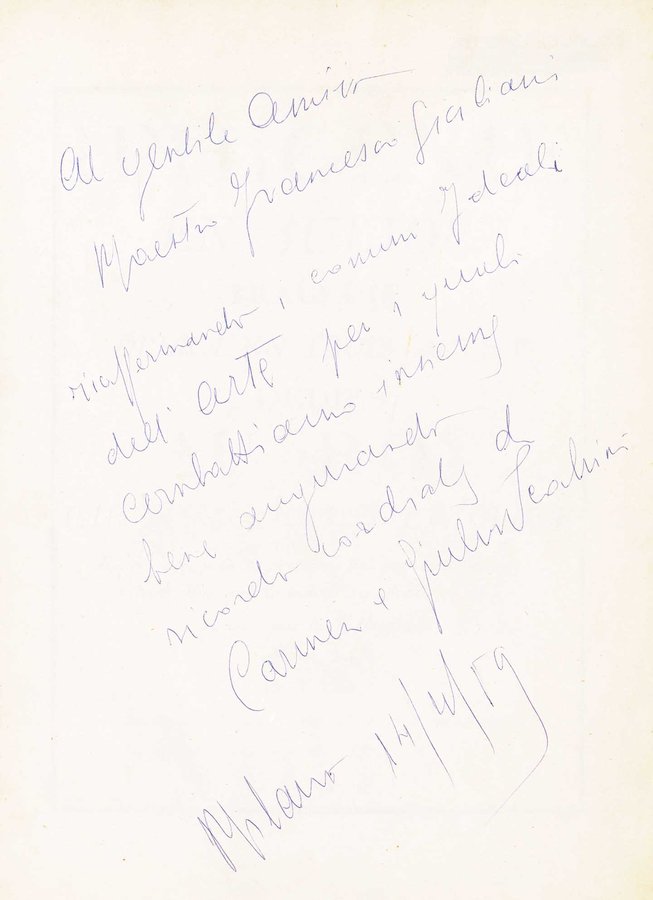 Al gentile Amico
Maestro Francesco Siciliani
riaffermando i comuni Ideali
dell'arte per i quali
combattiamo insieme
bene augurando
ricordo cordiale di
Carmen e Giulio
Milano 14/4/59